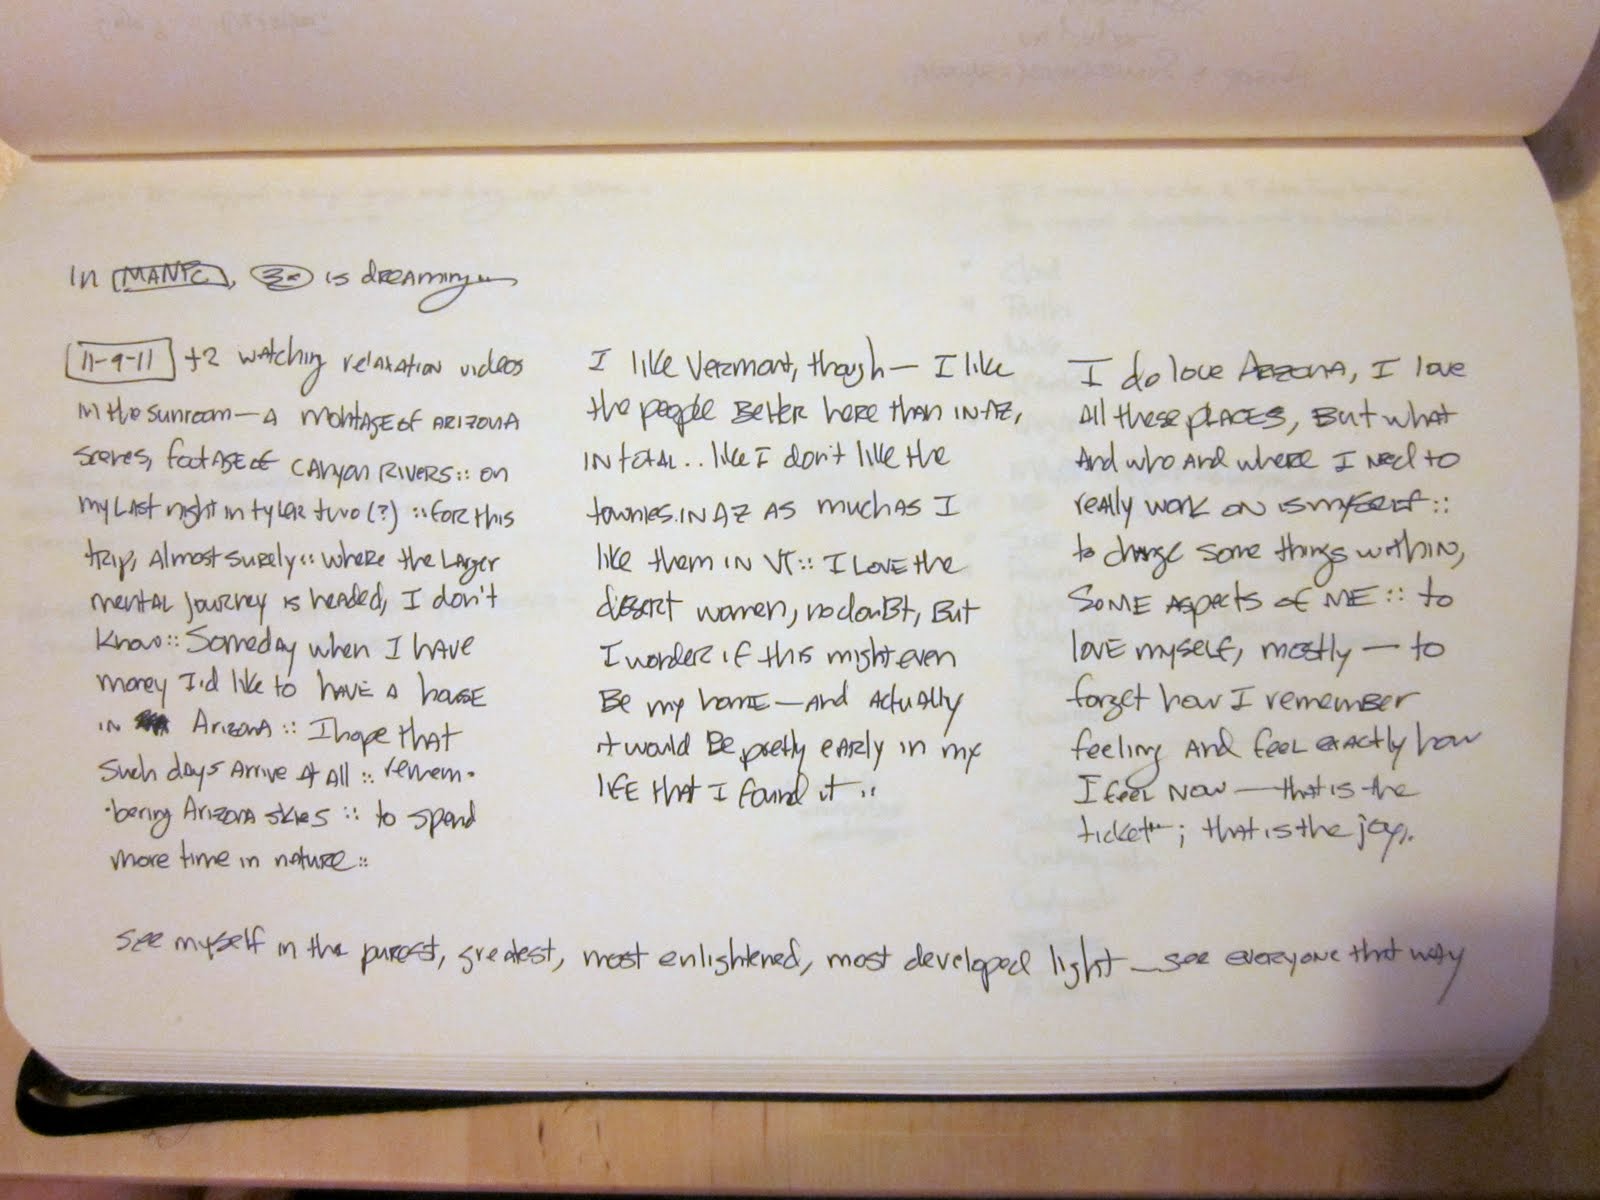 In MANIC, is dreaming...
11-9-11 +2 watching relaxation videos
in the sunroom — a montage of Arizona
scenes, footage of canyon rivers :: on
my last night in tyler two (?) :: for this
trip, almost surely :: where the larger
mental journey is headed, I don't
know :: Someday when I have
money I'd like to have a house
in Arizona :: I hope that
such days arrive at all :: remem-
-bering Arizona skies :: to spend
more time in nature ::
I like Vermont, though — I like
the people better here than in AZ,
in total .. like I don't like the
townies in AZ as much as I
like them in VT :: I love the
desert women, no doubt, but
I wonder if this might even
be my home — and actually
it would be pretty early in my
life that I found it ..
I do love Arizona, I love
all these places, but what
and who and where I need to
really work on is myself ::
to change some things within,
some aspects of me :: to
love myself, mostly — to
forget how I remember
feeling and feel exactly how
I feel now — that is the
ticket — ; that is the joy.
see myself in the purest, greatest, most enlightened, most developed light — see everyone that way